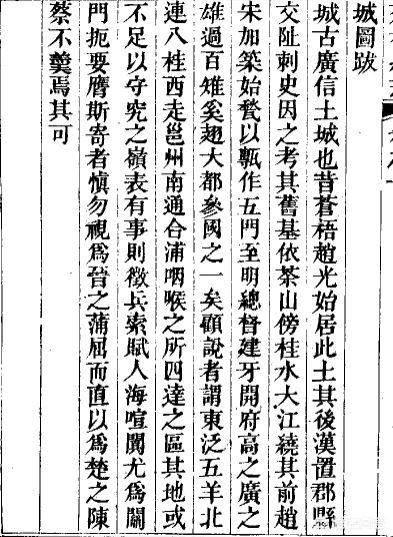 城圖跋
城古廣信土城也昔蒼梧趙光始居此土其後漢置郡縣
交阯刺史因之考其舊基依茶山傍桂水大江繞其前趙
宋加築始甃以甎作五門至明總督建牙開府高之廣之
雄過百雉奚趐大都參國之一矣顧說者謂東泛五羊北
連八桂西走邕州南通合浦咽喉之所四達之區其地或
不足以守究之嶺表有事則徵兵索賦人海喧闐尤為關
門扼要膺斯寄者愼勿視爲晉之蒲屈而直以爲楚之陳
蔡不羹焉其可